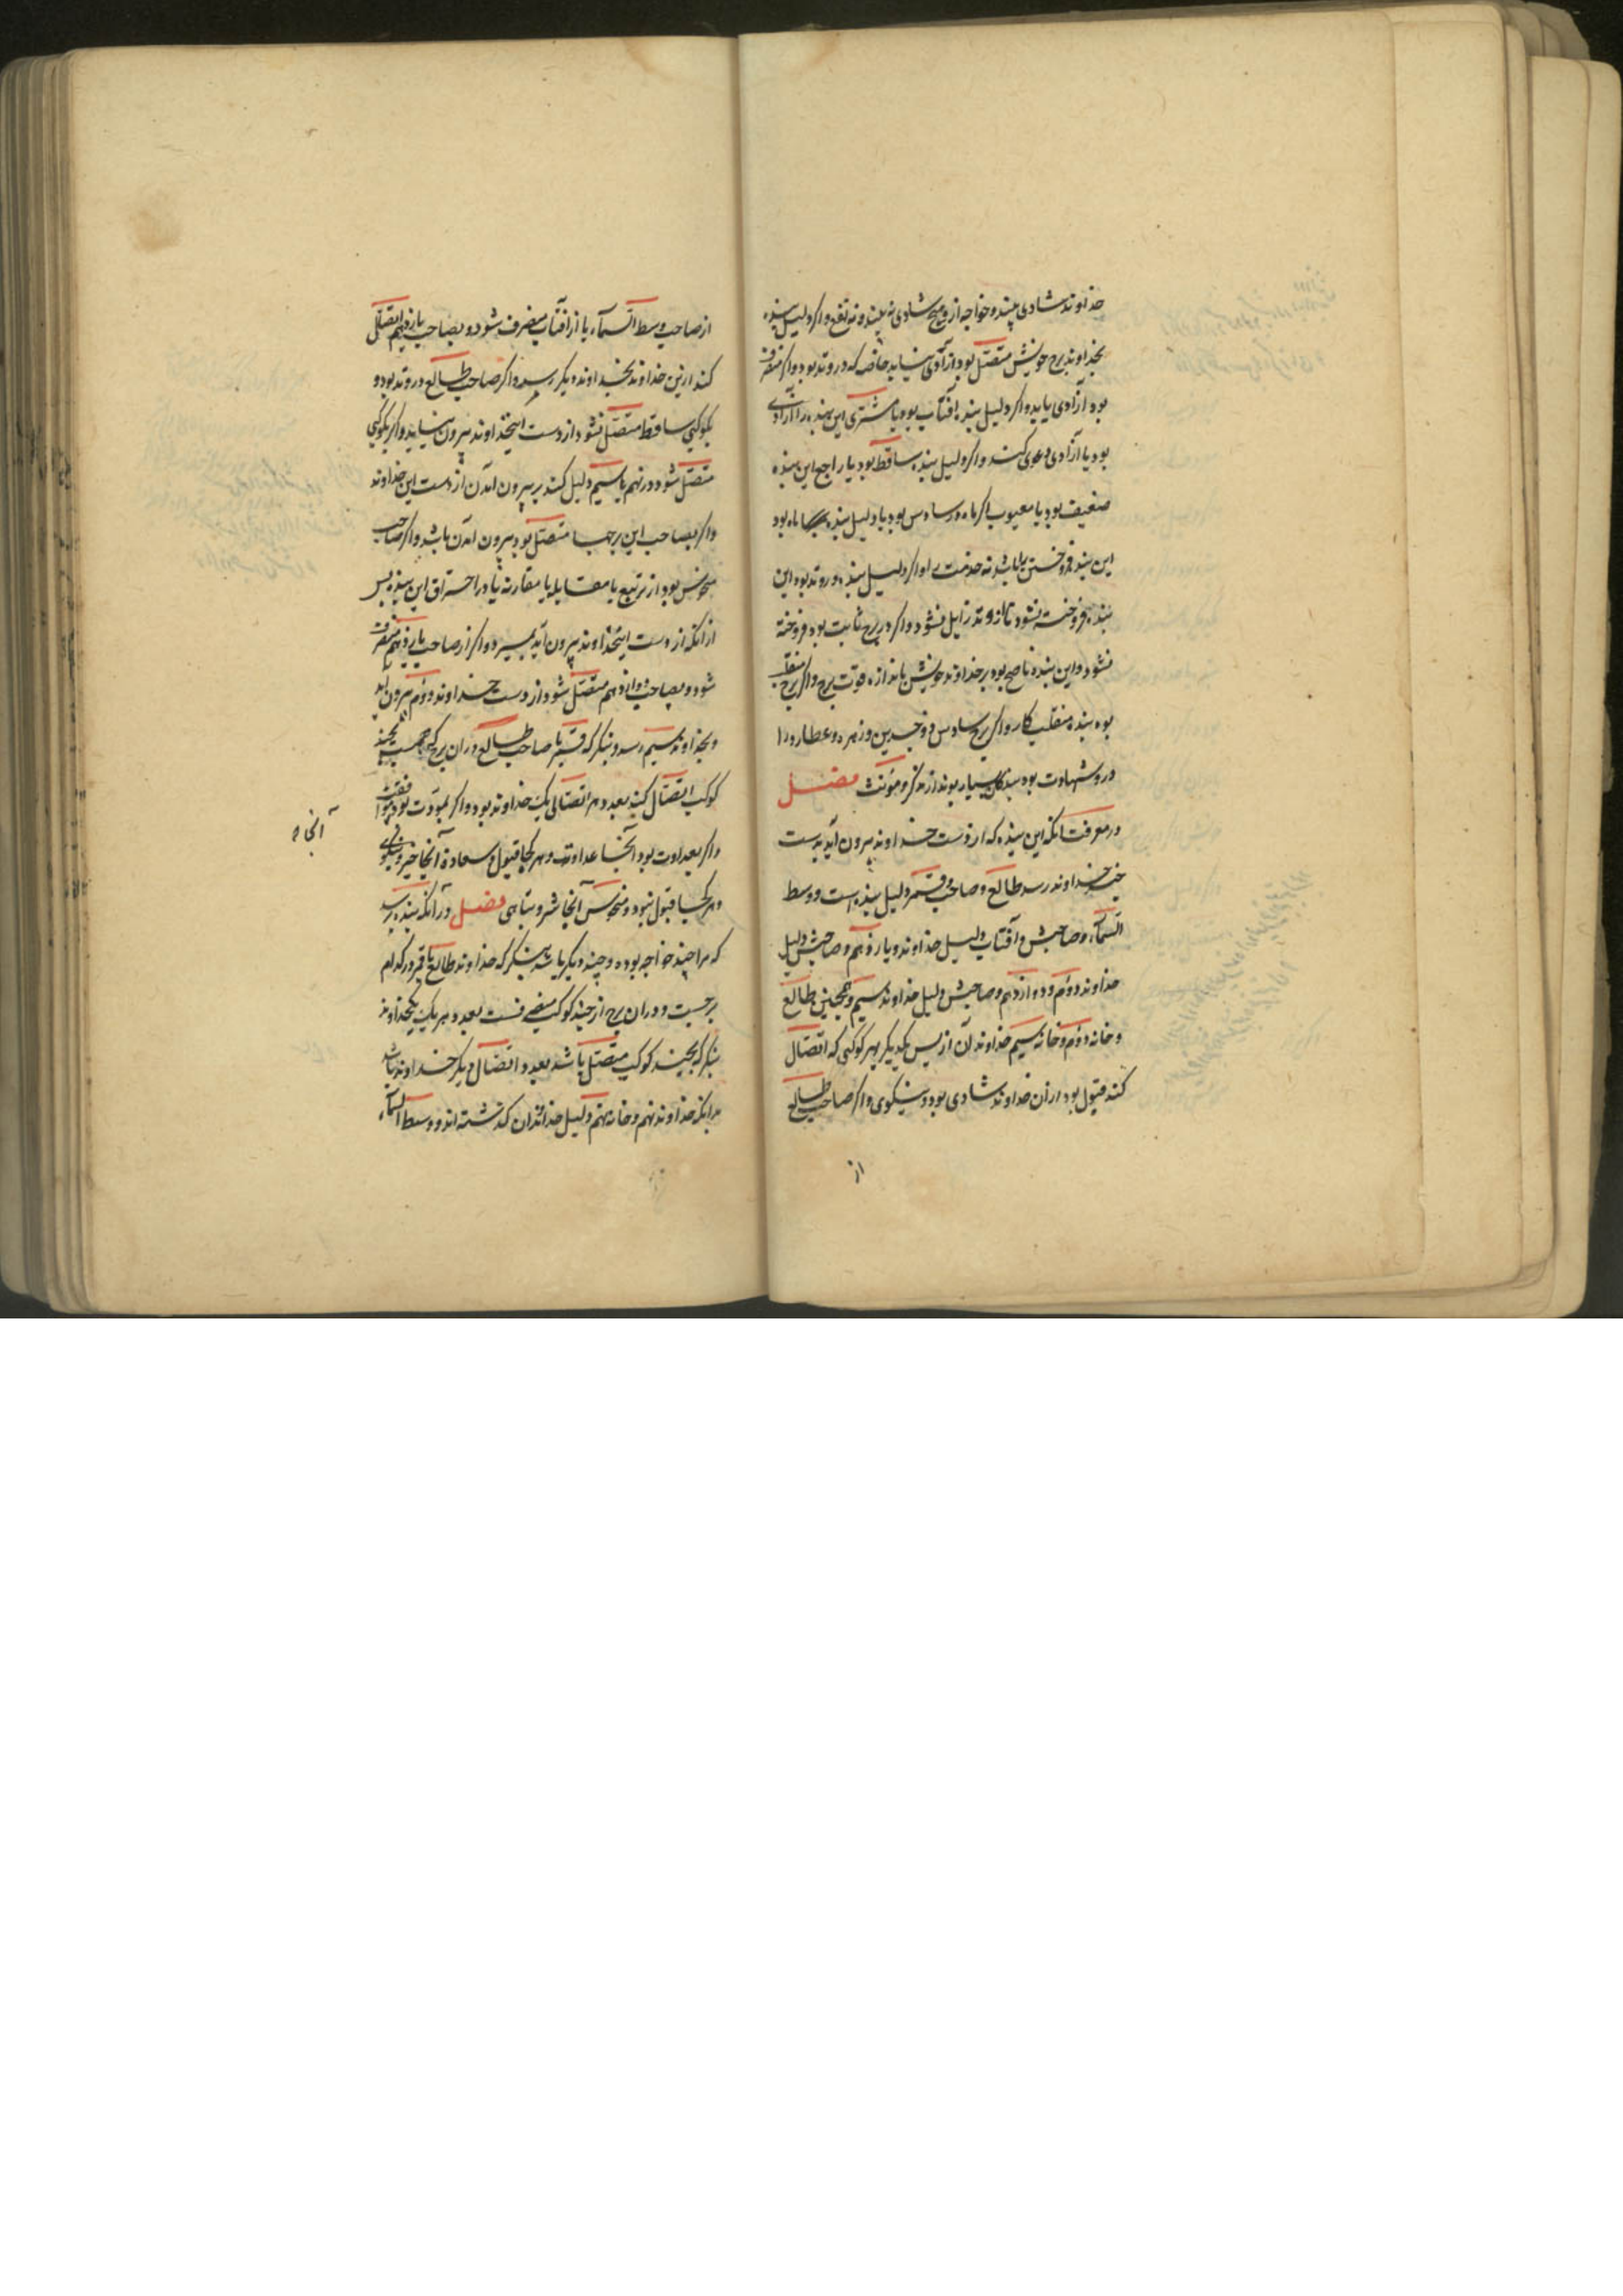 خداوند شادی بیند و خواجه از و هیچ شادی نه بیند و نه نفع و اکر دلیل بنده
بخداوند برج خویش متصل بود از آزادی نیابد خاصه که در وتد بود و اکر منصرف
بود آزادی یابد و اکر دلیل بنده بافتاب بود یا مشتری این بنده را آزادی
بود یا آزادی دعوی کند و اکر دلیل بنده ساقط بود یا راجع این بنده
ضعیف بود یا معیوب اکر ماه در سادس بود یا دلیل بنده با ماه بود
این بنده فروختن را باشد نه خدمت را و اکر دلیل بنده در وتد بود این
بنده فروخته نشود تا از وتد زایل نشود و اکر در برج ثابت بود فروخته
نشود و این بنده ناصح بود بر خداوند خویش باندازه قوت برج و اکر برج منقلب
بود بنده منقلب کار و اکر برج سادس ذو جسدین و زهره و عطارد را
درو شهادت بود بندکان بسیار بوند از مذکر و مونث فصل
در معرفت آنکه این بنده که از دست خداوند بیرون آید بدست
چند خداوند رسد طالع و صاحبش و قمر دلیل بنده است و وسط
السماء و صاحبش و آفتاب دلیل خداوند و یازدهم و صاحبش دلیل
خداوند دوم و دوازدهم و صاحبش دلیل خداوند سیم و همچنین طالع
و خانه دوم و خانه سیم خداوند آن از پس یکدیکر بهر کوکبی که اتصال
کند قبول بود از آن خداوند شادی بود و نیکوی و اکر صاحب طالع
از
از صاحب وسط السماء یا از آفتاب منصرف شود و بصاحب یازدهم اتصال
کند ازین خداوند بخداوند دیکر رسد و اکر صاحب طالع در وتد بود و
بکوکبی ساقط متصل نشود از دست این خداوند بیرون نیاید و اکر بکوکبی
متصل شود در نهم یا سیم دلیل کند بر بیرون آمدن از دست این خداوند
و اکر بصاحب این برجها متصل بود بیرون آمدن باشد و اکر صاحب
منحوس بود از تربیع یا مقابله یا مقارنه یا در احتراق این بنده پس
از آنکه از دست این خداوند بیرون آید بمیرد و اکر از صاحب یازدهم منصرف
شود و بصاحب دوازدهم متصل شود از دست خداوند دوم بیرون آید
و بخداوند سیم رسد و بنکر که قمر یا صاحب طالع در آن برج که هست بچند
کوکب اتصال کند بعدد هر اتصالی یک خداوند بود و اکر بمودت بود موافقت
و اکر بعداوت بود آنجا عداوت و هر کجا قبول و سعادة آنجا خیر و نیکوی
و هر کجا قبول نبود و منحوس آنجا شر و تباهی فصل در آنکه بنده پرسد
که مرا چند خواجه بوده و چند دیکر باشد بنکر که خداوند طالع یا قمر در کدام
برجست و در آن برج از چند کوکب منصرفست بعدد هر یک یکخداوند
بنکر که بچند کوکب متصل باشد بعدد اتصال دیکر خداوند باشد
بدانکه خداوند نهم و خانه نهم دلیل خداوندان کذشته اند و وسط السماء
آنجا